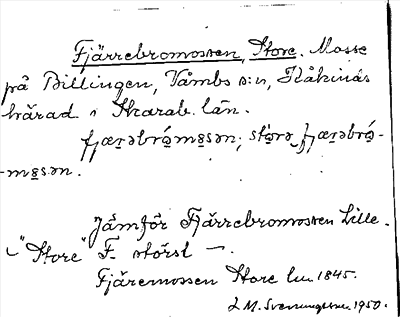 Fjärrebromossen, Store. Mosse
på Billingen, Våmbs s:n, Kåkinds
härad i Skarab. län.
fjæṛəbrómosən; störə fjæṛəbró-
-mosən.
Jämför Fjärrebromossen Lille.
"Store" F. störst
Fjäremossen Store 1845.
L M. Svenungsson 1950.